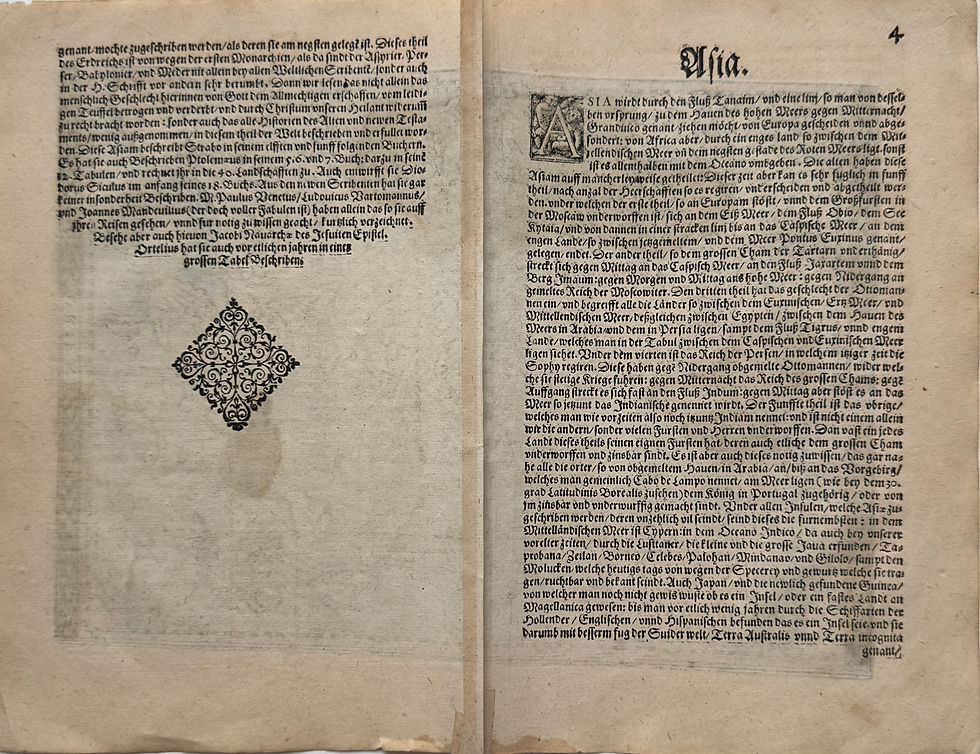 genant/mochte zugeschriben werden/als deren sie am negsten gelegē ist. Dieses theil
des Erdreichs ist von wegen der ersten Monarchien/als da sindt der Assyrier/Per-
ser/Babylonier/vnd Meder nit allein bey allen Weltlichen Scribentē/sonder auch
in der H. Schrifft vor andern sehr berumbt. Dann wir lesen das nicht allein das
menschlich Geschlecht hierinnen von Gott dem Allmechtigen erschaffen/vom leidi-
gen Teuffel betrogen vnd verderbt/vnd durch Christum vnseren Heilant widerum̄
zu recht bracht worden: sonder auch das alle Historien des Alten vnd newen Testa-
ments/wenig außgenomen/in diesem theil der Welt beschrieben vnd erfullet wor-
den. Diese Asiam beschreibt Strabo in seinem elfften vnd funff folgenden Buchern.
Es hat sie auch Beschrieben Ptolemæus in seinem 5. 6. vnd 7. Buch: darzu in seinē
12. Tabulen/vnd rechnet jhr in die 40. Landschafften zu. Auch entwirfft sie Dio-
dorus Siculus im anfang seines 18. Buchs. Aus den newen Scribenten hat sie gar
keiner insonderheit Beschriben. M. Paulus Venetus/Ludouicus Vartomannus/
vnd Joannes Mandeuilius (der doch voller Fabulen ist) haben allein das so sie auff
jhren Reisen gesehen/vnnd fur notig zu wissen geacht/kurtzlich verzeichnet.
Besehe aber auch hieuon Jacobi Nauarchæ des Jesuiten Epistel.
Ortelius hat sie auch vor etlichen jahren in einer
grossen Tabel Beschriben.
4
Asia.
ASIA wirdt durch den Fluß Tanaim/vnd eine lini/so man von dessel-
ben vrsprung/zu dem Hauen des hohen Meers gegen Mitternacht/
Grandnico genant/ziehen möcht/von Europa gescheiden vnnd abge-
sondert: von Africa aber/durch ein enges land so zwischen dem Mit-
tellendischen Meer vn̄ dem negsten gestade des Roten Meers ligt. sonst
ist es allenthalben mit dem Oceano vmbgeben. Die alten haben diese
Asiam auff mancherley weise getheilet: Dieser zeit aber kan es sehr fuglich in funff
theil/nach anzal der Heerschafften so es regiren/vnderscheiden vnd abgetheilt wer-
den. vnder welchen der erste theil/so an Europam stösst/vnnd dem Großfursten in
der Moscaw vnderworffen ist/sich an dem Eiß Meer/dem Fluß Obio/dem See
Kytaia/vnd von dannen in einer stracken lini bis an das Caspische Meer/an dem
engen Lande/so zwischen jetzgemeltem/vnnd dem Meer Pontus Euxinus genant/
gelegen/endet. Der ander theil/so dem grossen Cham der Tartarn vnderthänig/
streckt sich gegen Mittag an das Caspisch Meer/an den Fluß Jaxartem vnnd dem
Berg Imaum: gegen Morgen vnd Mittag ans hohe Meer: gegen Nidergang an
gemeltes Reich der Moscowiter. Den dritten theil hat das geschlecht der Ottoman-
nen ein/vnd begreifft alle die Länder so zwischen dem Euxinischen/Ertz Meer/vnd
Mittellendischen Meer/deßgleichen zwischen Egypten/zwischen dem Hauen des
Meers in Arabia/vnd dem in Persia ligen/sampt dem Fluß Tigrus/vnnd engem
Lande/welches man in der Tabul zwischen dem Caspischen vnd Euxinischen Meer
ligen sichet. Vnder dem vierten ist das Reich der Persen/in welchem itziger zeit die
Sophy regiren. Diese haben gegē Nidergang obgemelte Ottomannen/wider wel-
che sie stetige Kriege fuhren: gegen Mitternacht das Reich des grossen Chams: gegē
Auffgang streckt es sich fast an den Fluß Indum: gegen Mittag aber stöst es an das
Meer so jetzunt das Indianische genennet wirdt. Der Funffte theil ist das vbrige/
welches man wie vor zeiten also noch itzunt Indiam nennet: vnd ist nicht einem allein
wie die andern/sonder vielen Fursten vnd Herren vnderworffen. Dan vast ein jedes
Landt dieses theils seinen eignen Fursten hat/deren auch etliche dem grossen Cham
vnderworffen vnd zinsbar sindt. Es ist aber auch dieses notig zu wissen/das gar na-
he alle die orter/so von obgemeltem Hauen/in Arabia/an/biß an das Vorgebirg/
welches man gemeinlich Cabo de Lampo nennet/am Meer ligen (wie bey dem 30.
grad Latitudinis Borealis zusehen) dem König in Portugal zugehörig/oder von
jm zinsbar vnd vnderwurffig gemacht sindt. Vnder allen Insulen/welche Asiæ zu-
geschriben werden/deren unzehlich vil seindt/seind dieses die furnembsten: in dem
Mittelländischen Meer ist Cypern: in dem Oceano Indico/da auch bey vnserer
vorelter zeiten/durch die Lusitaner/die kleine vnd die grosse Jaua erfunden/Ta-
probana/Zeilan/Borneo/Celebes/Palohan/Mindanao/vnd Gilolo/sampt den
Molucken/welche heutigs tags von wegen der Specerey vnd gewurtz welche sie tra-
gen/ruchtbar vnd bekant seindt. Auch Japan/vnd die newlich gefundene Guinea/
von welcher man noch nicht gewis wuste ob es ein Insel/oder ein fastes Landt an
Magellanica gewesen: bis man vor etlich wenig jahren durch die Schiffarten der
Hollender/Englischen/vnnd Hispanischen befunden das es ein Insel seie. vnd sie
darumb mit besserm fug der Suider welt/Terra Australis vnnd Terra incognita
genant/